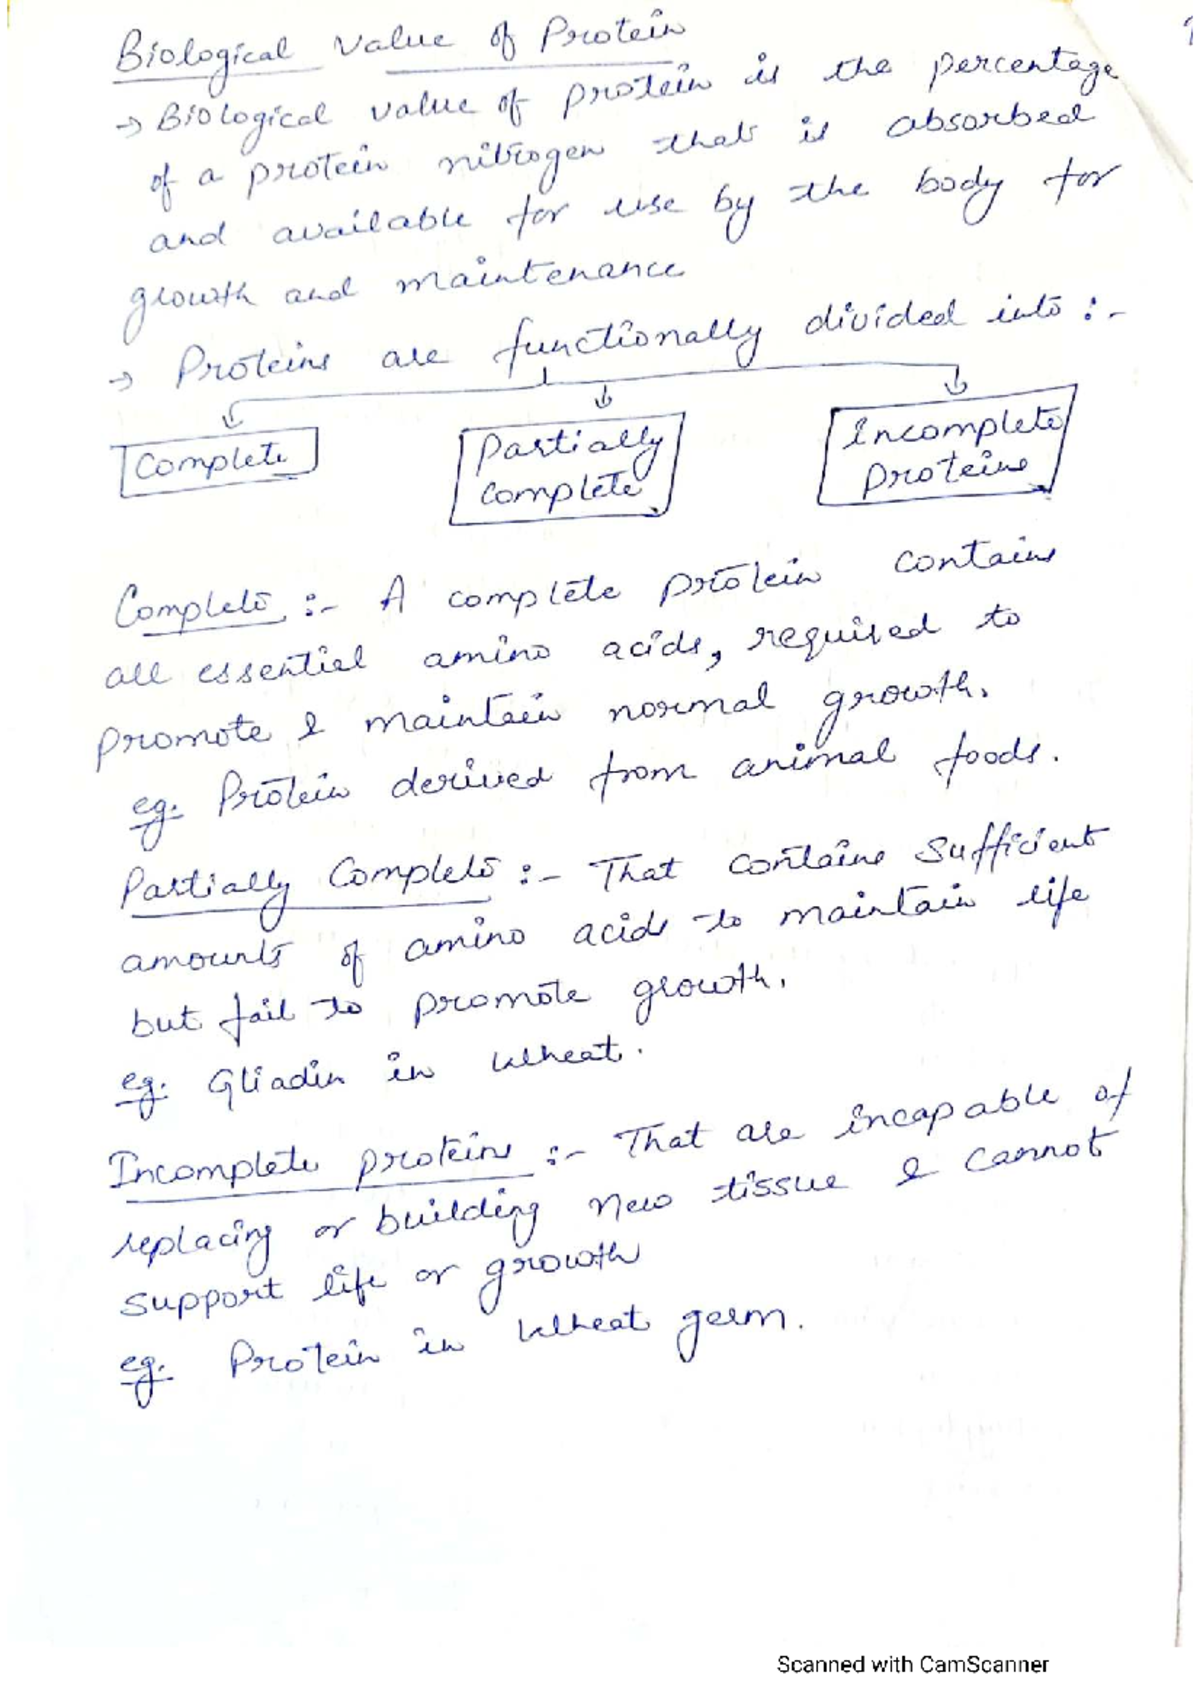 Biological value of Protein
→ Biological value of protein is the percentage
of a protein nitrogen that is absorbed
and available for use by the body for
growth and maintenance
→ Proteins are functionally divided into :-
Complete
Partially
complete
Incomplete
proteins
Complete :- A complete protein contains
all essential amino acids, required to
promote & maintain normal growth.
eg. Protein derived from animal foods.
Partially Complete :- That contains sufficient
amounts of amino acids to maintain life
but fail to promote growth.
eg. Gliadin in wheat.
Incomplete proteins :- That are incapable of
replacing or building new tissue & cannot
support life or growth
eg. Protein in wheat germ.
Scanned with CamScanner